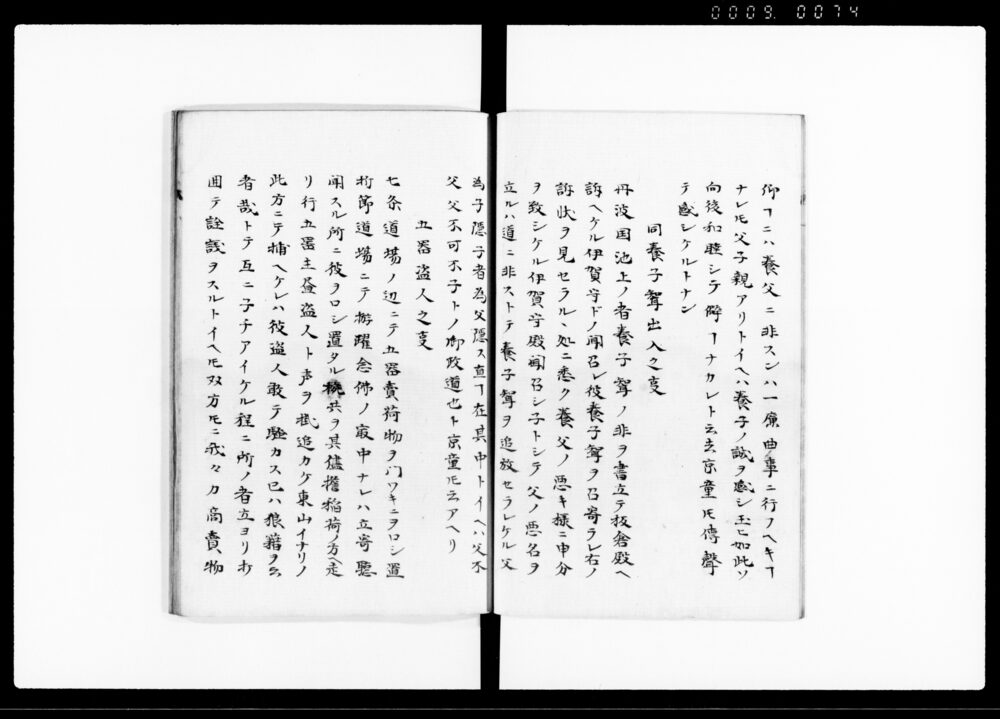 0009. 0074
仰ヿニハ養父ニ非スンハ一廉曲事ニ行フヘキヿ
ナレ𪜈父子親アリトイヘハ養子ノ誠ヲ感シ玉ヒ如此ソ
向後和睦シテ僻ヿナカレト云云京童𪜈傳聲
テ感シケルトナン
同養子聟出入之㕝
丹波国池上ノ者養子聟ノ非ヲ書立テ板倉殿ヘ
訴ヘケル伊賀守ドノ聞召レ彼養子聟ヲ召寄ラレ右ノ
訴状ヲ見セラル丶処ニ悉ク養父ノ悪キ様ニ申分
ヲ致シケル伊賀守殿聞召シ子トシテ父ノ悪名ヲ
立ルハ道ニ非ストテ養子聟ヲ追放セラレケル父
為子隠子者為父隠ス直ヿ在其中トイヘハ父不
父父不可不子トノ御政道也ト京童𪜈云アヘリ
五器盗人之㕝
七条道場ノ辺ニテ五器賣荷物ヲ門ワキニヲロシ置
折節道場ニテ踊躍念佛ノ最中ナレハ立寄聴
聞スル所ニ彼ヲロシ置タル椀共ヲ其儘擔稲荷ノ方ヘ走
リ行五器主昼盗人ト声ヲ掛追カケ東山イナリノ
此方ニテ捕ヘケレハ彼盗人敢テ騒カス己ハ狼藉ヲ云
者哉トテ互ニ子チアイケル程ニ所ノ者立ヨリ打
囲テ詮議ヲスルトイヘ𪜈双方𪜈ニ我々カ商賣物